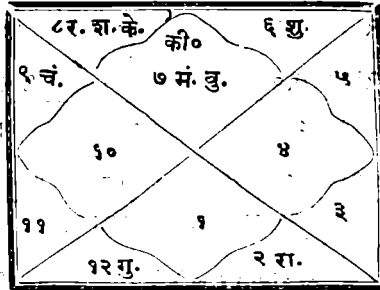 ८र. श. के.
की०
६ शु.
९ चं.
७ मं. वु.
५
१०
४
११
१
३
१२ गु.
२ रा.